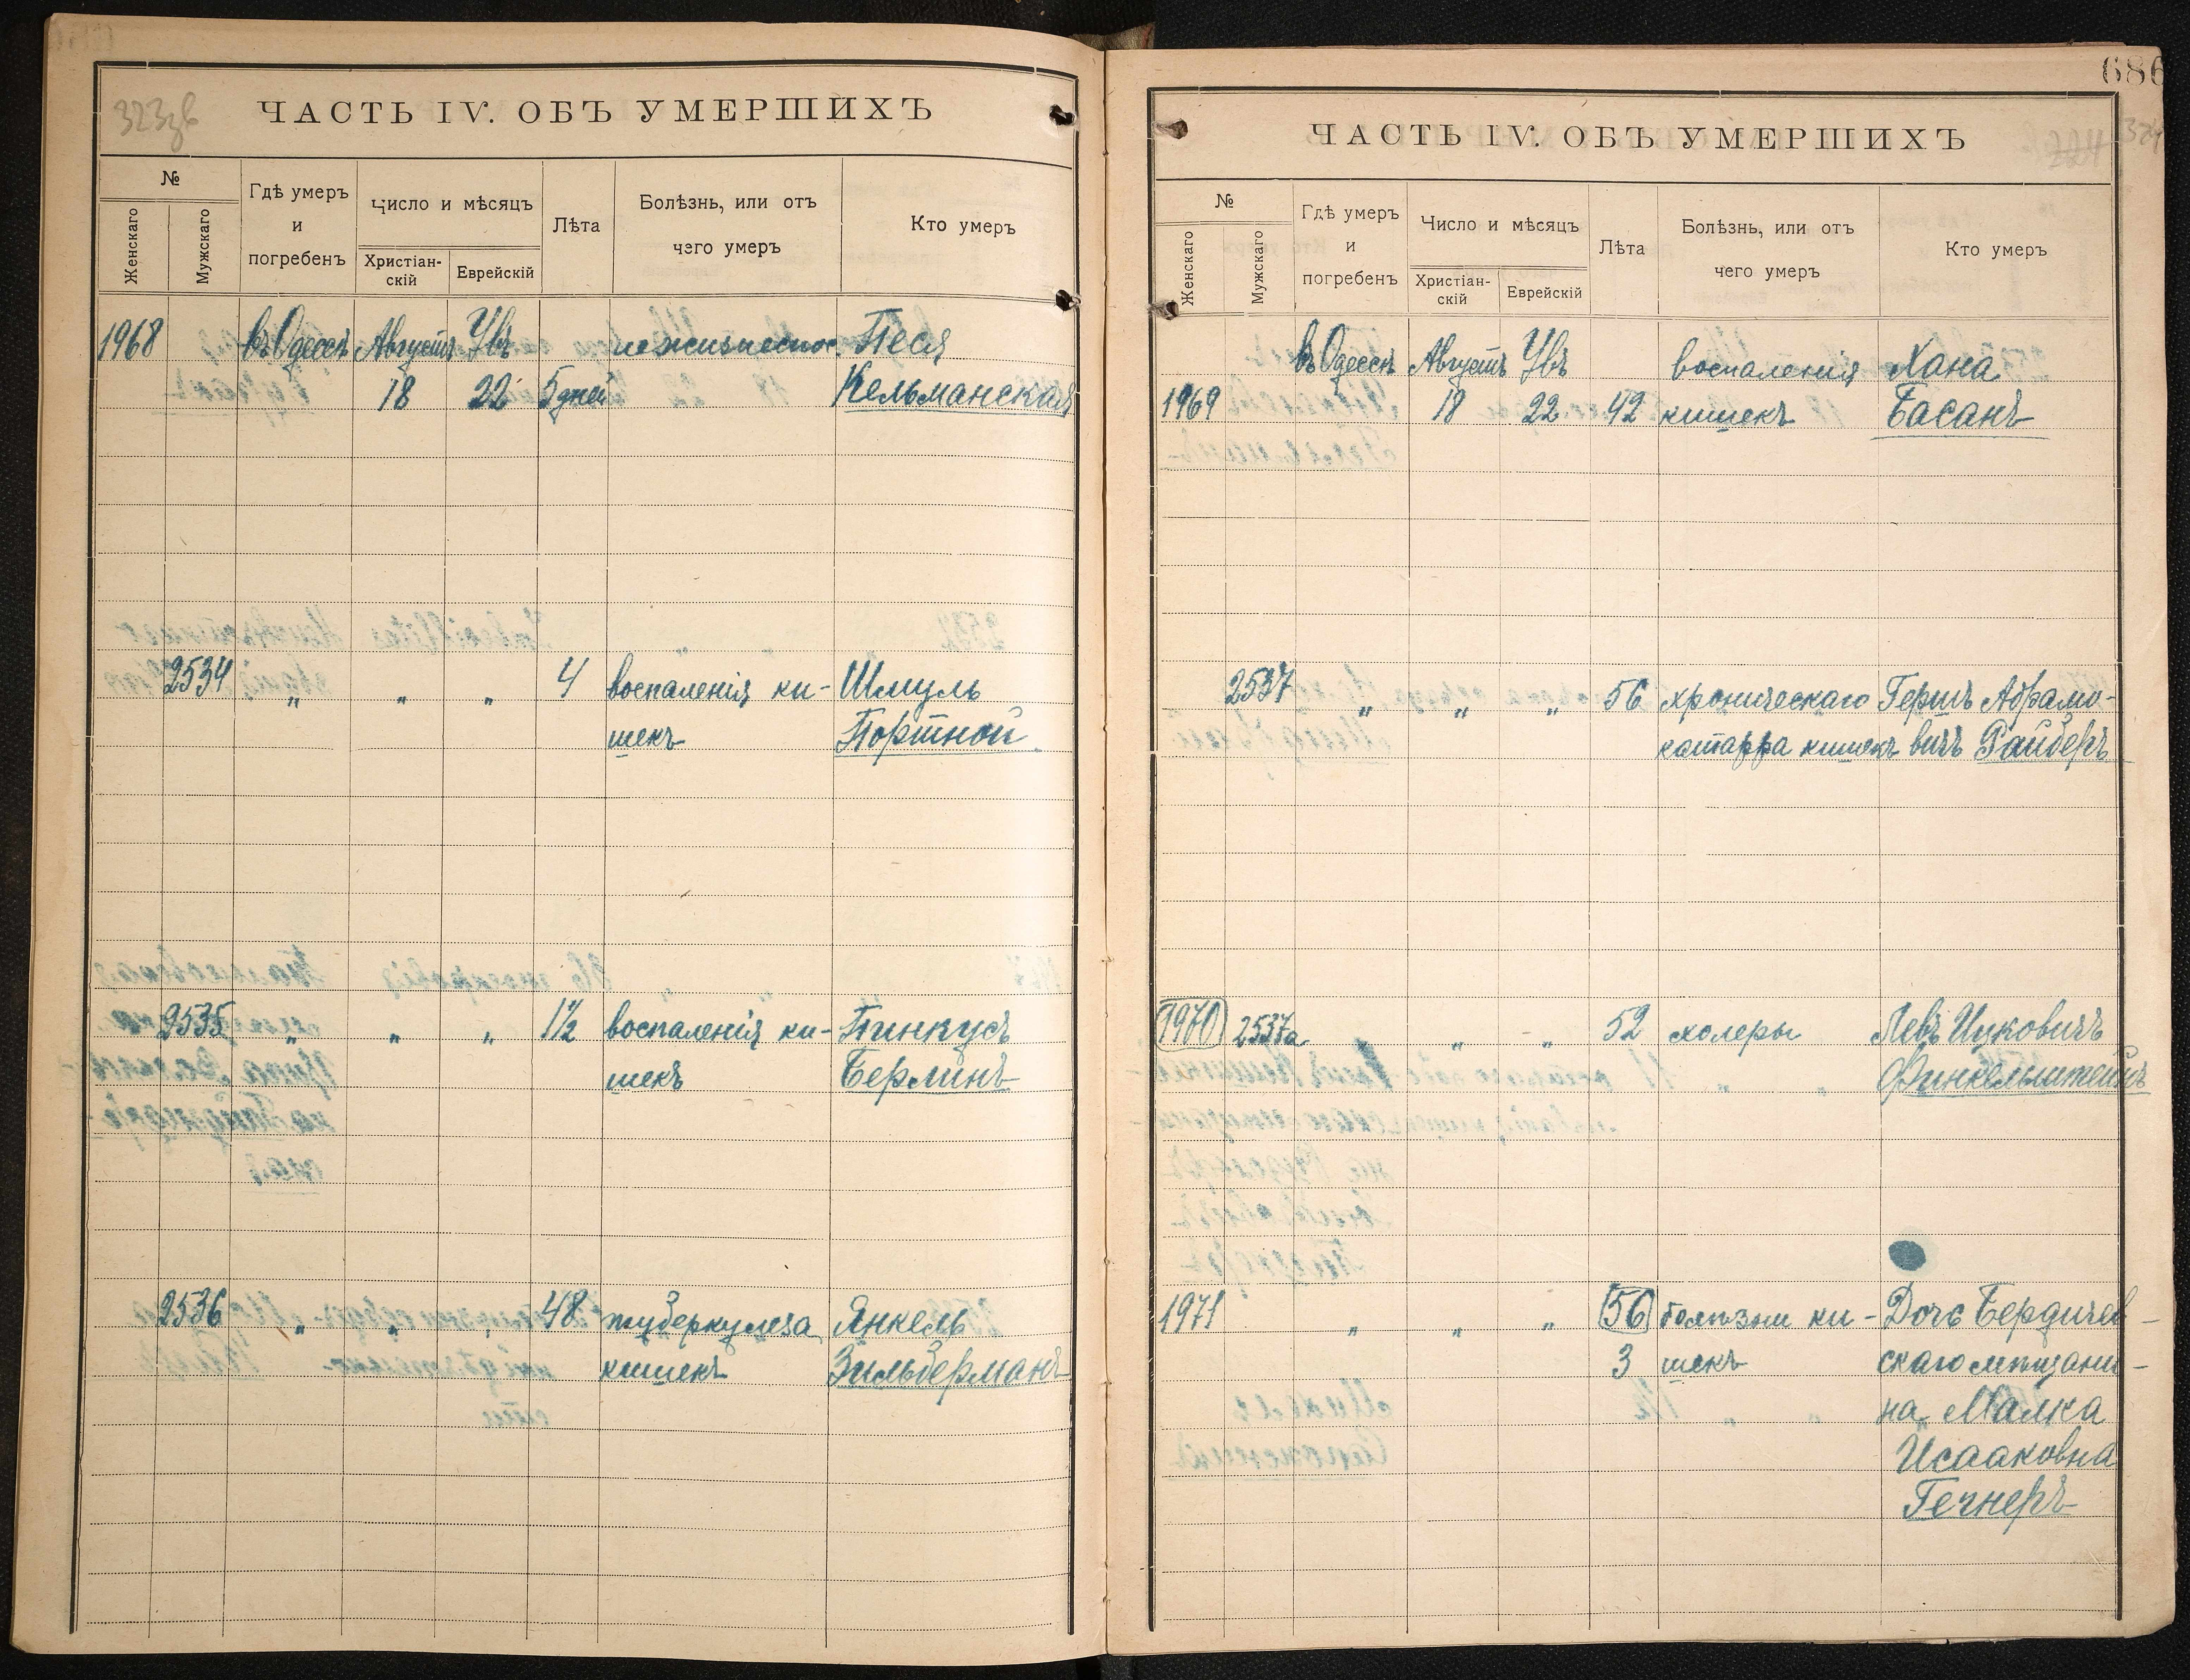 323зв
ЧАСТЬ IV. ОБЪ УМЕРШИХЪ
№
Женскаго
Мужскаго
Гдѣ умеръ
и
погребенъ
Число и мѣсяцъ
Христіан-
скій
Еврейскій
Лѣта
Болѣзнь, или отъ
чего умеръ
Кто умеръ
1968 въ Одессѣ Августъ Увъ нежизнеспос. Песя
18 22 5 дней Кельманская
2534 „ „ „ 4 воспаленія ки- Шмуль
шекъ Портной
2535 „ „ „ 1½ воспаленія ки- Пинкусъ
шекъ Берлинъ
2536 „ „ „ 48 туберкулеза Янкель
кишекъ Зильберманъ
686
324
224
ЧАСТЬ IV. ОБЪ УМЕРШИХЪ
№
Женскаго
Мужскаго
Гдѣ умеръ
и
погребенъ
Число и мѣсяцъ
Христіан-
скій
Еврейскій
Лѣта
Болѣзнь, или отъ
чего умеръ
Кто умеръ
въ Одессѣ Августъ Увъ воспаленія Хана
1969 18 22 42 кишекъ Басанъ
2537 „ „ „ 56 хроническаго Гершъ Абрамо-
катарра кишекъ вичъ Райберъ
1970 2537а „ „ „ 52 холеры Левъ Ицковичъ
Финкельштейнъ
1971 „ „ „ 56 болѣзни ки- Дочь Бердичев-
3 шекъ скаго мѣщани-
на Малка
Исааковна
Гечнеръ